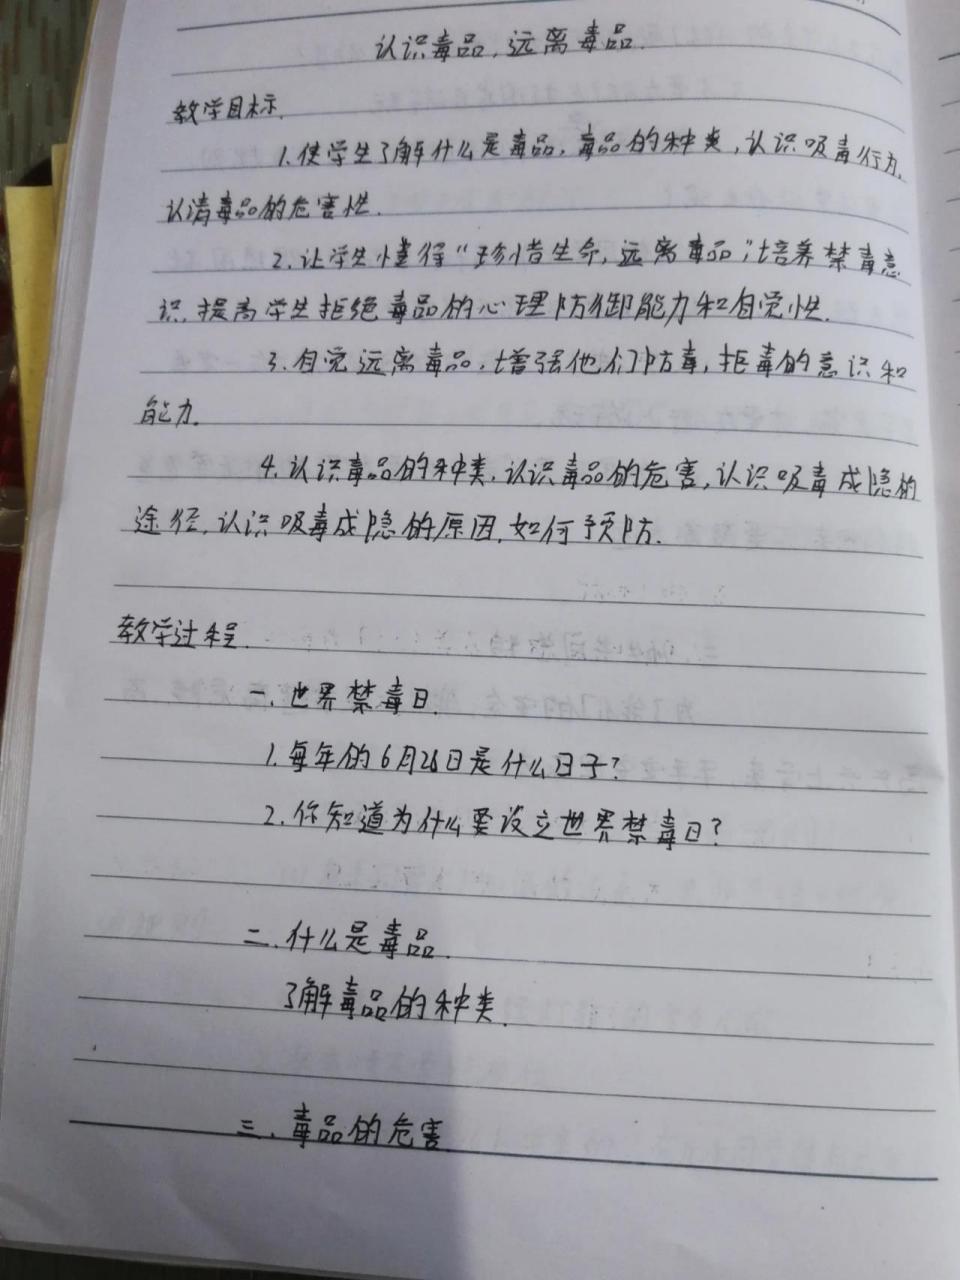 认识毒品，远离毒品.
教学目标.
1.使学生了解什么是毒品，毒品的种类，认识吸毒行为，
认清毒品的危害性.
2.让学生懂得“珍惜生命，远离毒品”，培养禁毒意
识，提高学生拒绝毒品的心理防御能力和自觉性.
3.自觉远离毒品，增强他们防毒，拒毒的意识和
能力.
4.认识毒品的种类，认识毒品的危害，认识吸毒成隐的
途径，认识吸毒成隐的原因，如何预防.
教学过程.
一.世界禁毒日.
1.每年的6月26日是什么日子?
2.你知道为什么要设立世界禁毒日?
二.什么是毒品.
了解毒品的种类.
三.毒品的危害.